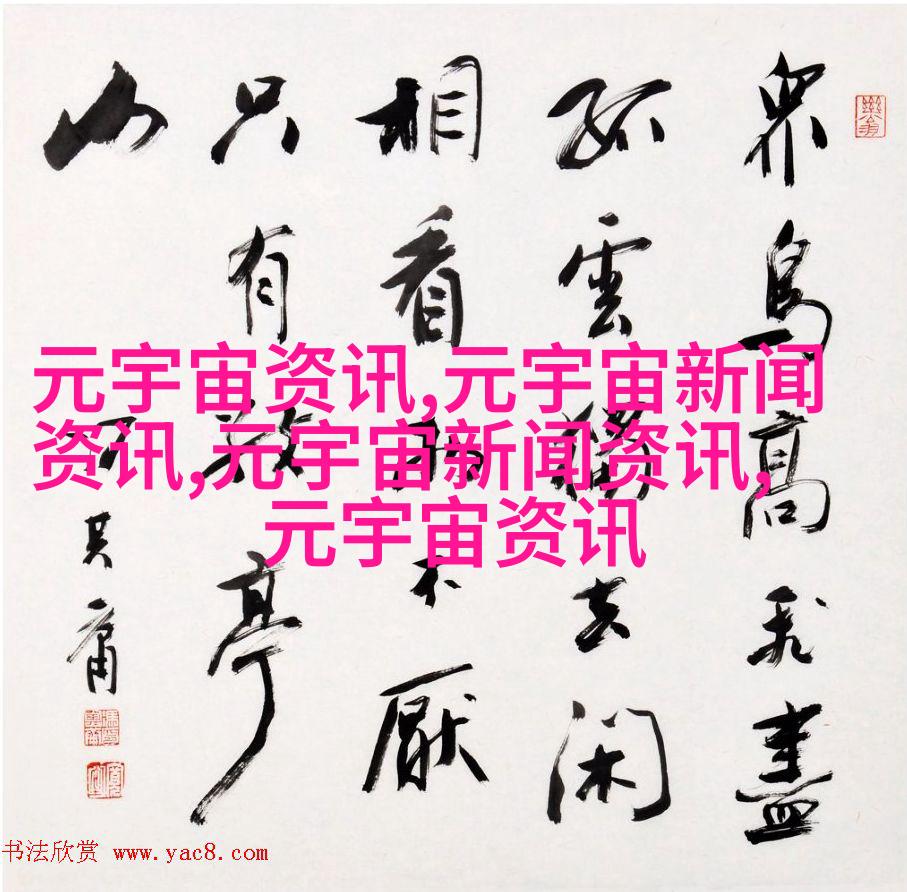 眾鳥高飛盡
孤雲獨去閑
相看不厭
只有敬亭
山
其庸
元宇宙资讯,元宇宙新闻
资讯,元宇宙新闻资讯,
元宇宙资讯
书法欣赏 www.yac8.com